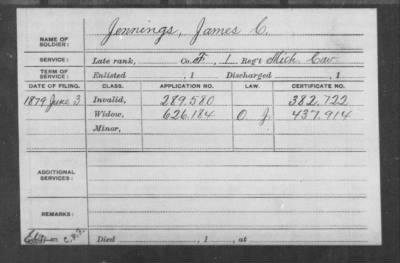 NAME OF SOLDIER: Jennings, James C.
SERVICE: Late rank, Co. F, 1 Reg't Mich. Cav.
TERM OF SERVICE: Enlisted , 1 Discharged , 1
DATE OF FILING. CLASS. APPLICATION NO. LAW. CERTIFICATE NO.
1879 June 3 Invalid, 289.580 382.722
Widow, 626.184 O J. 437.914
Minor,
ADDITIONAL SERVICES:
REMARKS:
Died , 1 , at